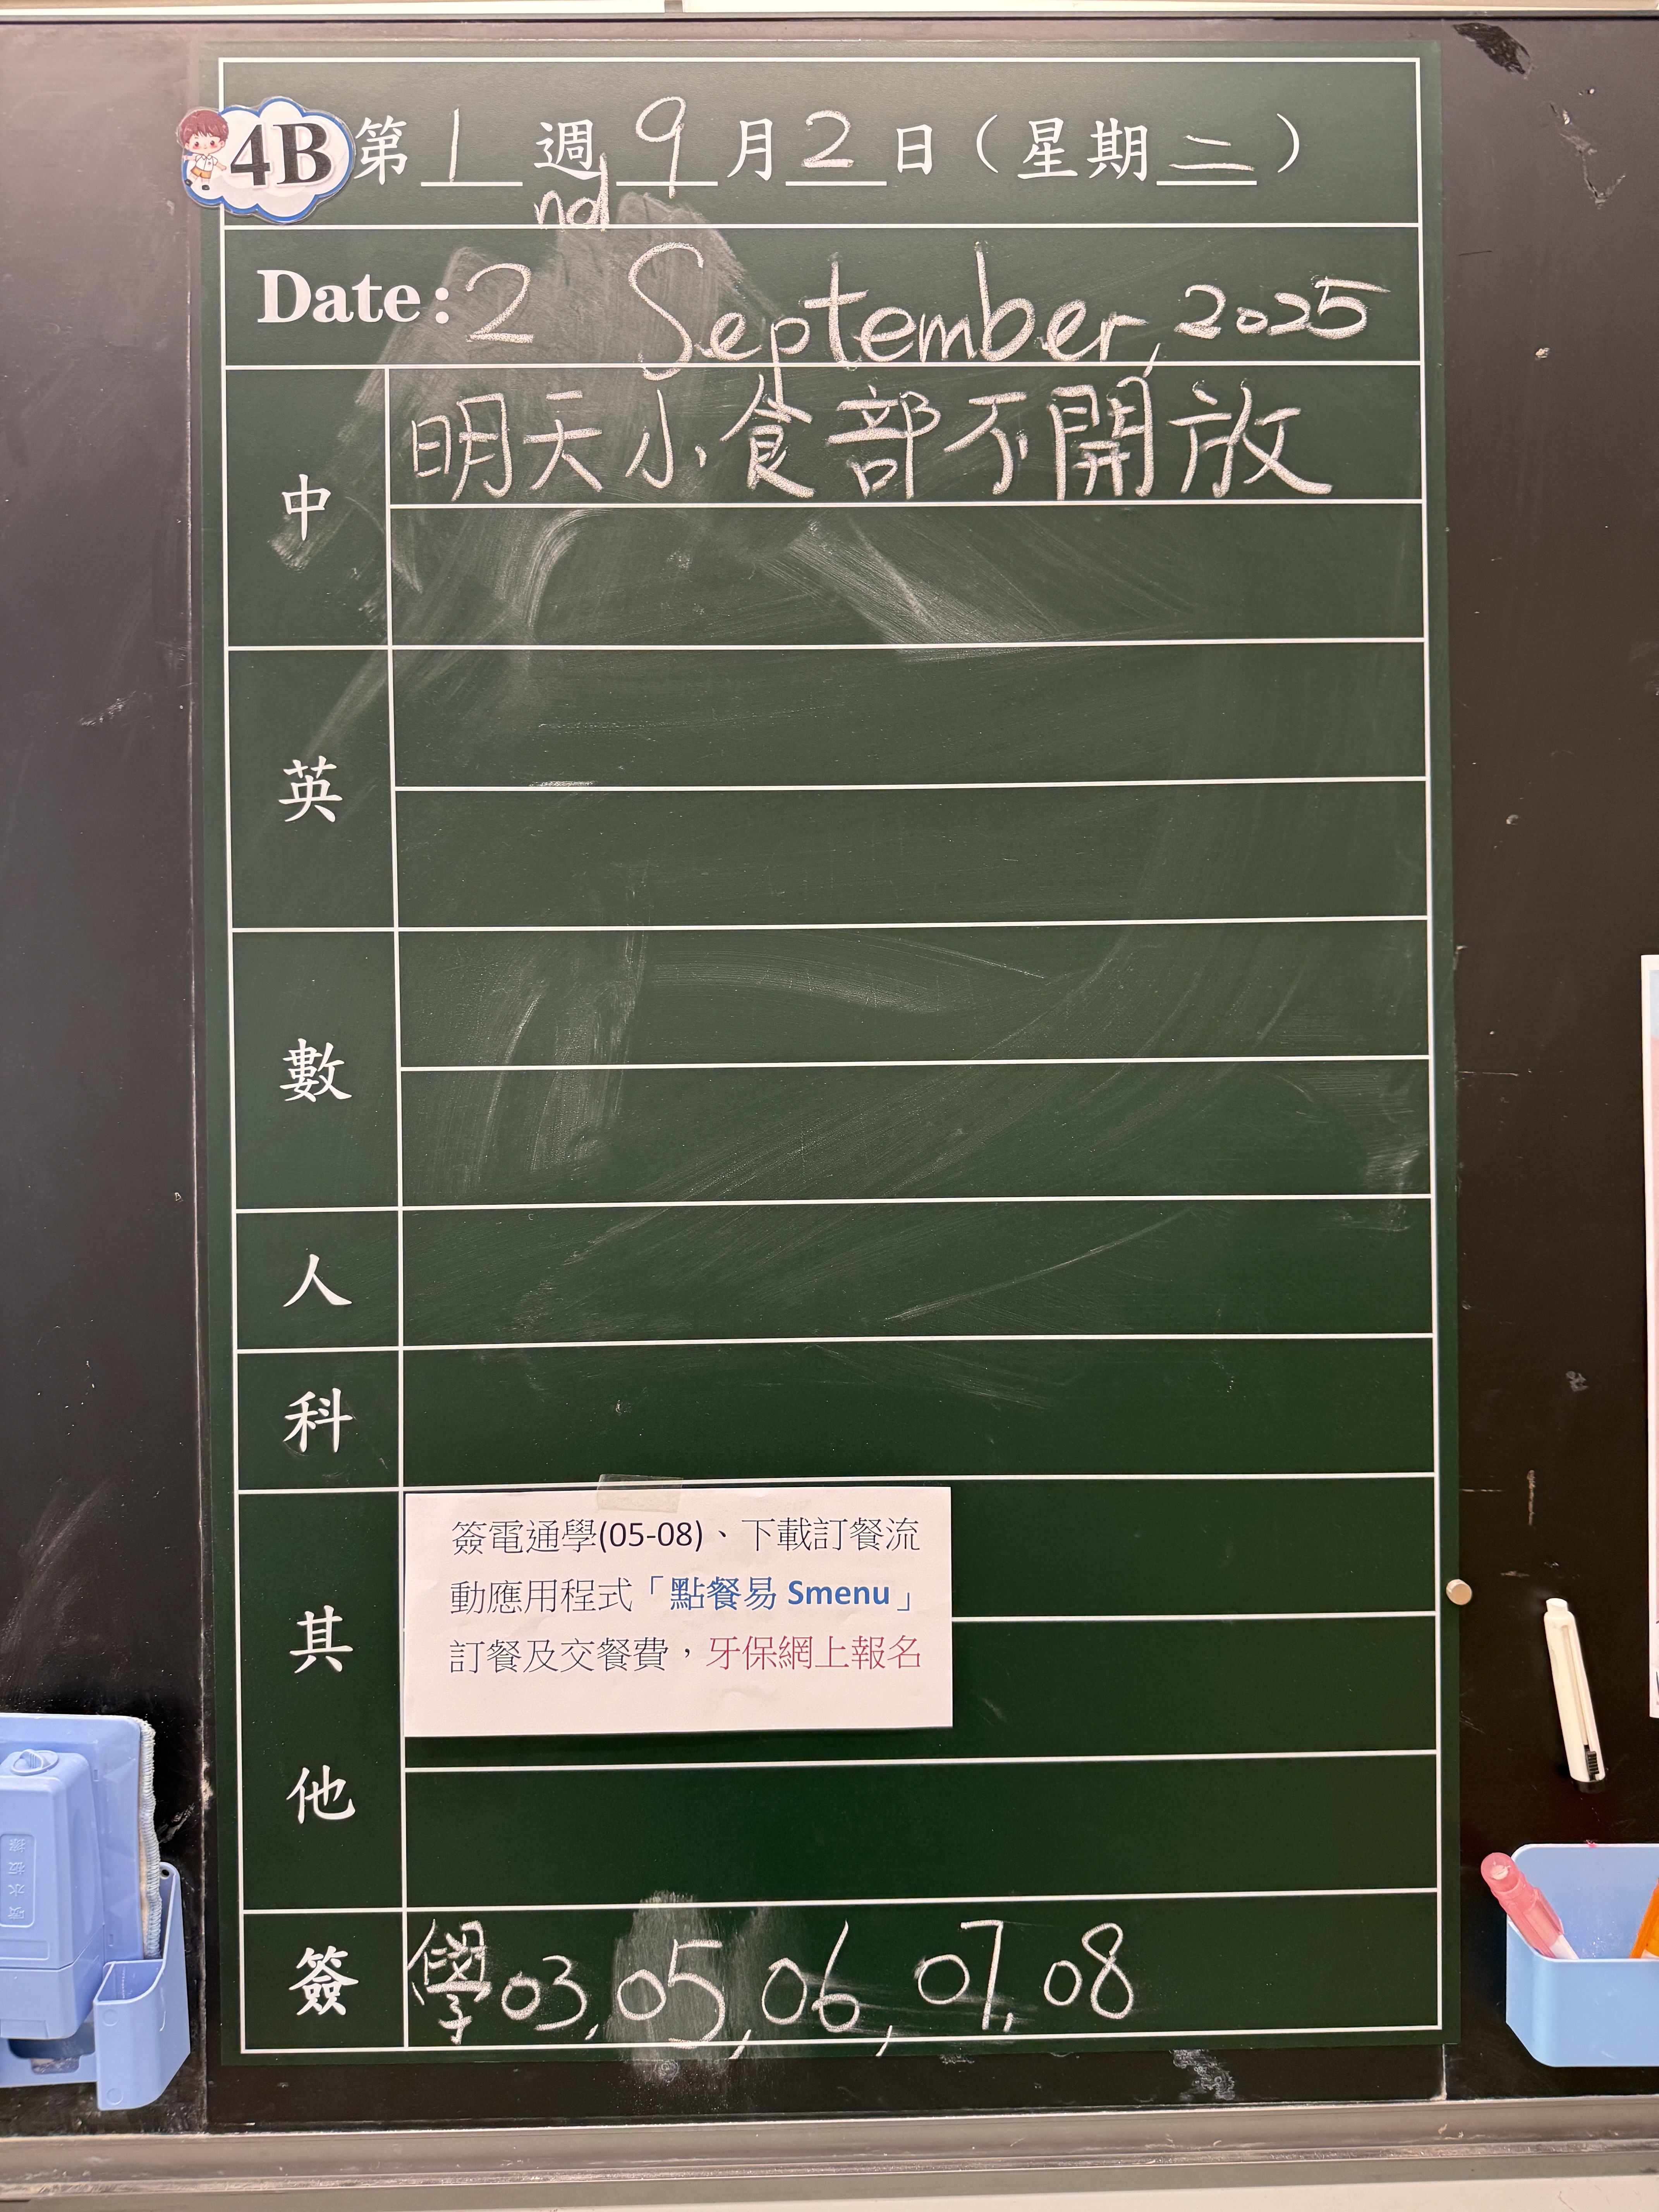 4B 第 1 週 9 月 2 日（星期二）
nd
Date: 2 September, 2025
中
明天小食部不開放
英
數
人
科
其他
簽電通學(05-08)、下載訂餐流
動應用程式「點餐易 Smenu」
訂餐及交餐費，牙保網上報名
簽 學03, 05, 06, 07, 08
噴水板擦